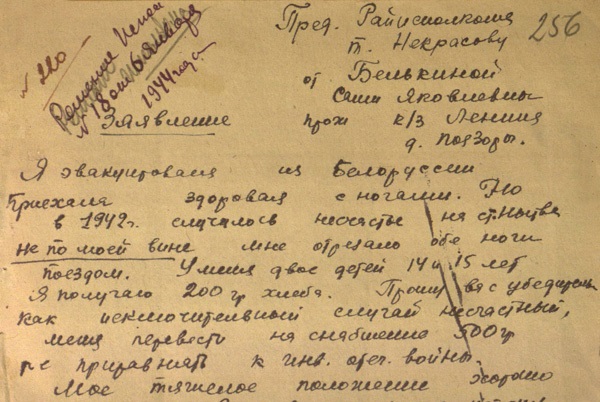 Пред. Райисполкома
256
т. Некрасову
от Белькиной
Сани Яковлевны
прож к/з Ленина
д. Подзоры.
N 220
Решение Испол
N 18 от 6 января
1944 года
Заявление
Я эвакуирована из Белоруссии
Приехала здоровая с ногами. Но
в 1942г. случилось несчастье на ст.
не по моей вине мне отрезало обе ноги
поездом. У меня двое детей 14 и 15 лет
Я получаю 200 гр хлеба. Прошу вас убедительно
как исключительный случай несчастный,
меня перевести на снабжение 500 гр
приравнять к инв. отеч. войны.
Мое тяжелое положение хорошо